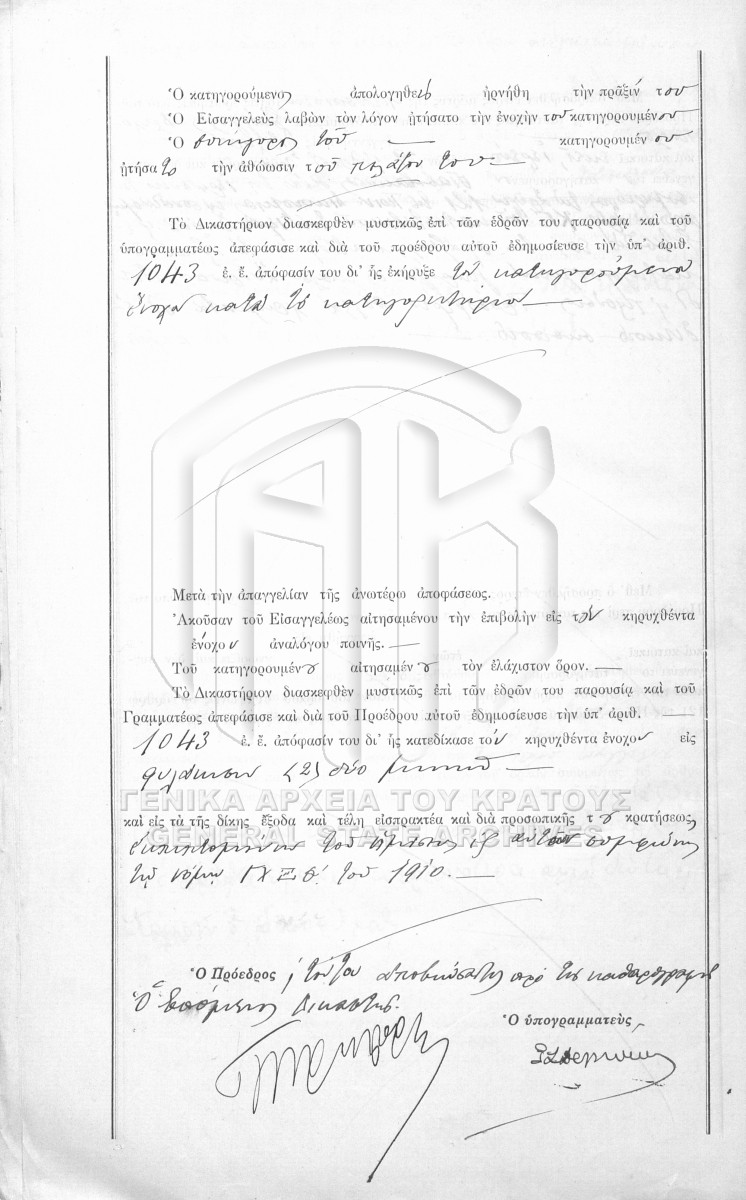 Ὁ κατηγορούμενος ἀπολογηθεὶς ἠρνήθη τὴν πρᾶξίν του
Ὁ Εἰσαγγελεὺς λαβὼν τὸν λόγον ᾐτήσατο τὴν ἐνοχὴν τοῦ κατηγορουμένου
Ὁ συνήγορος τοῦ — κατηγορουμένου
ᾐτήσατο τὴν ἀθώωσιν τοῦ πελάτου του —
Τὸ Δικαστήριον διασκεφθὲν μυστικῶς ἐπὶ τῶν ἑδρῶν του παρουσίᾳ καὶ τοῦ
ὑπογραμματέως ἀπεφάσισε καὶ διὰ τοῦ προέδρου αὐτοῦ ἐδημοσίευσε τὴν ὑπ' ἀριθ.
1043 ἐ. ἔ. ἀπόφασίν του δι' ἧς ἐκήρυξε τὸν κατηγορούμενον
ἔνοχον κατὰ τὸ κατηγορητήριον —
Μετὰ τὴν ἀπαγγελίαν τῆς ἀνωτέρω ἀποφάσεως.
Ἀκοῦσαν τοῦ Εἰσαγγελέως αἰτησαμένου τὴν ἐπιβολὴν εἰς τὸν κηρυχθέντα
ἔνοχον ἀναλόγου ποινῆς. —
Τοῦ κατηγορουμένου αἰτησαμένου τὸν ἐλάχιστον ὅρον. —
Τὸ Δικαστήριον διασκεφθὲν μυστικῶς ἐπὶ τῶν ἑδρῶν του παρουσίᾳ καὶ τοῦ
Γραμματέως ἀπεφάσισε καὶ διὰ τοῦ Προέδρου αὐτοῦ ἐδημοσίευσε τὴν ὑπ' ἀριθ. —
1043 ἐ. ἔ. ἀπόφασίν του δι' ἧς κατεδίκασε τὸν κηρυχθέντα ἔνοχον εἰς
φυλάκισιν (2) δύο μηνῶν —
ΓΕΝΙΚΑ ΑΡΧΕΙΑ ΤΟΥ ΚΡΑΤΟΥΣ
καὶ εἰς τὰ τῆς δίκης ἔξοδα καὶ τέλη εἰσπρακτέα καὶ διὰ προσωπικῆς του κρατήσεως,
GENERAL STATE ARCHIVES
ἐκπιπτομένης τοῦ ἡμίσεος ἐξ αὐτῶν συμφώνως
τῷ νόμῳ ΓΧΞΘ' τοῦ 1910. —
Ὁ Πρόεδρος τούτου ἀποβιώσαντος πρὸ τῆς καθαρογραφῆς
Ὁ Ἑπόμενος Δικαστής.
Ὁ ὑπογραμματεὺς